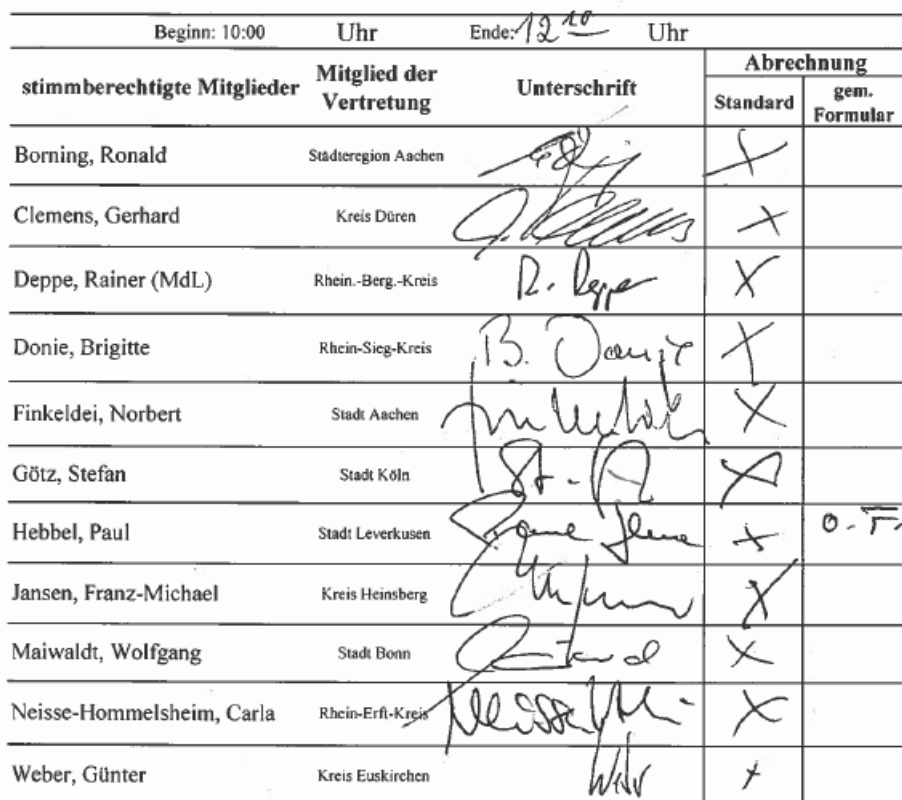 Beginn: 10:00 Uhr Ende: 12 10 Uhr
stimmberechtigte Mitglieder Mitglied der Vertretung Unterschrift Abrechnung
Standard gem. Formular
Borning, Ronald Städteregion Aachen X
Clemens, Gerhard Kreis Düren X
Deppe, Rainer (MdL) Rhein.-Berg.-Kreis R. Deppe X
Donie, Brigitte Rhein-Sieg-Kreis B. Donie X
Finkeldei, Norbert Stadt Aachen X
Götz, Stefan Stadt Köln St. X
Hebbel, Paul Stadt Leverkusen X
Jansen, Franz-Michael Kreis Heinsberg X
Maiwaldt, Wolfgang Stadt Bonn X
Neisse-Hommelsheim, Carla Rhein-Erft-Kreis X
Weber, Günter Kreis Euskirchen X